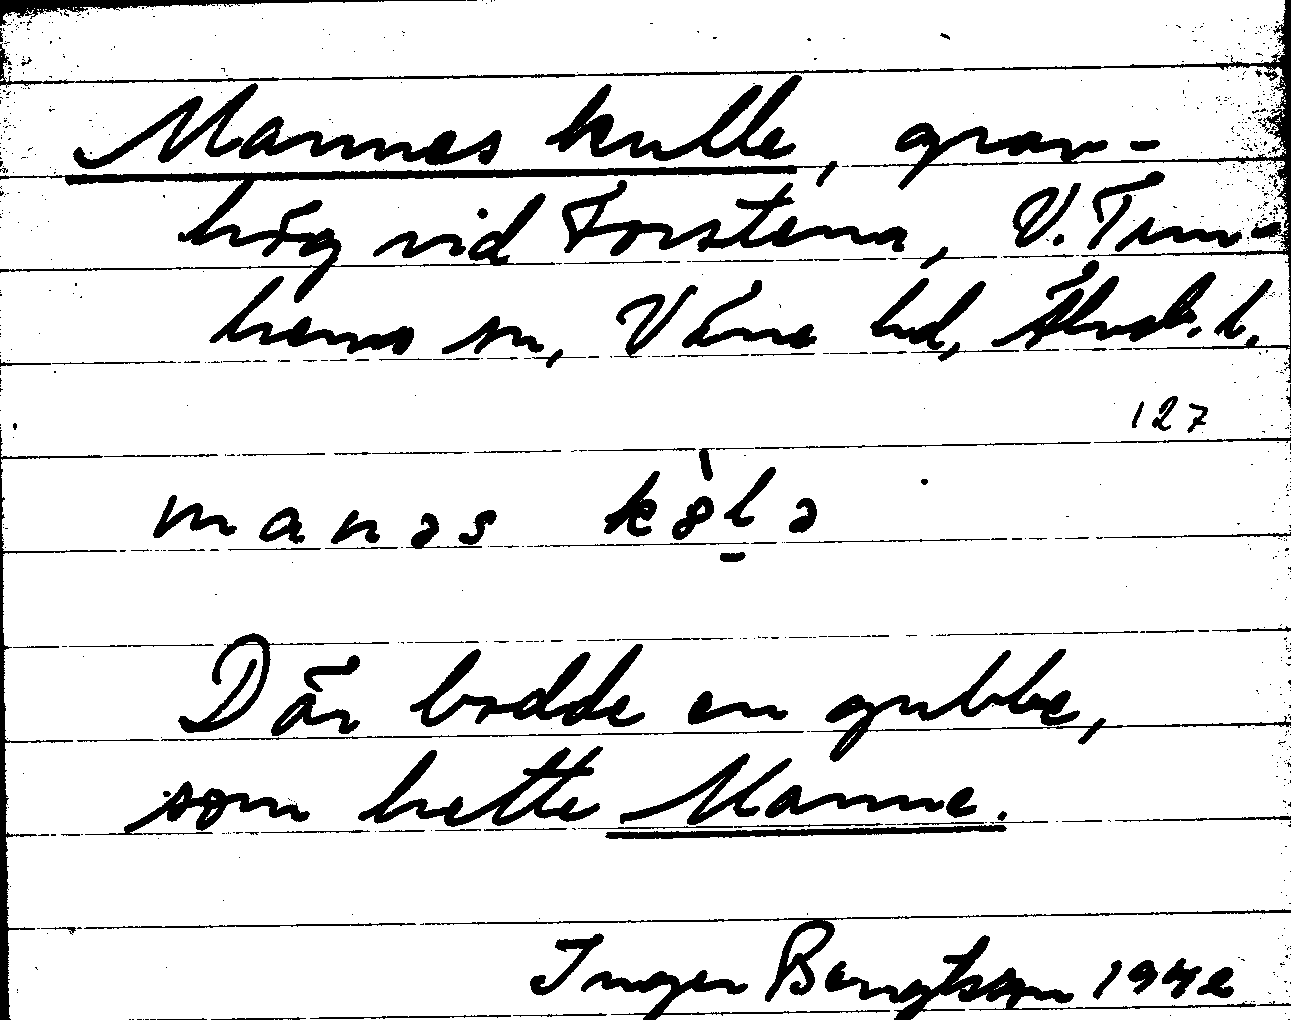 Mannes kulle, grav-
hög vid Forstena, V. Tun-
hems sn, Väne hd, Älvsb. l.
127
manəs k8̀l̠ə
Där bodde en gubbe,
som hette Manne.
Inger Bengtsson 1942